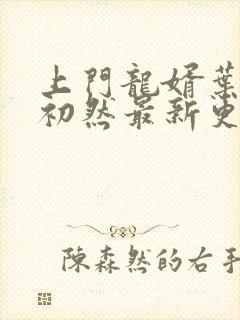 上門龍婿葉
初然最新更
陳森然的右手